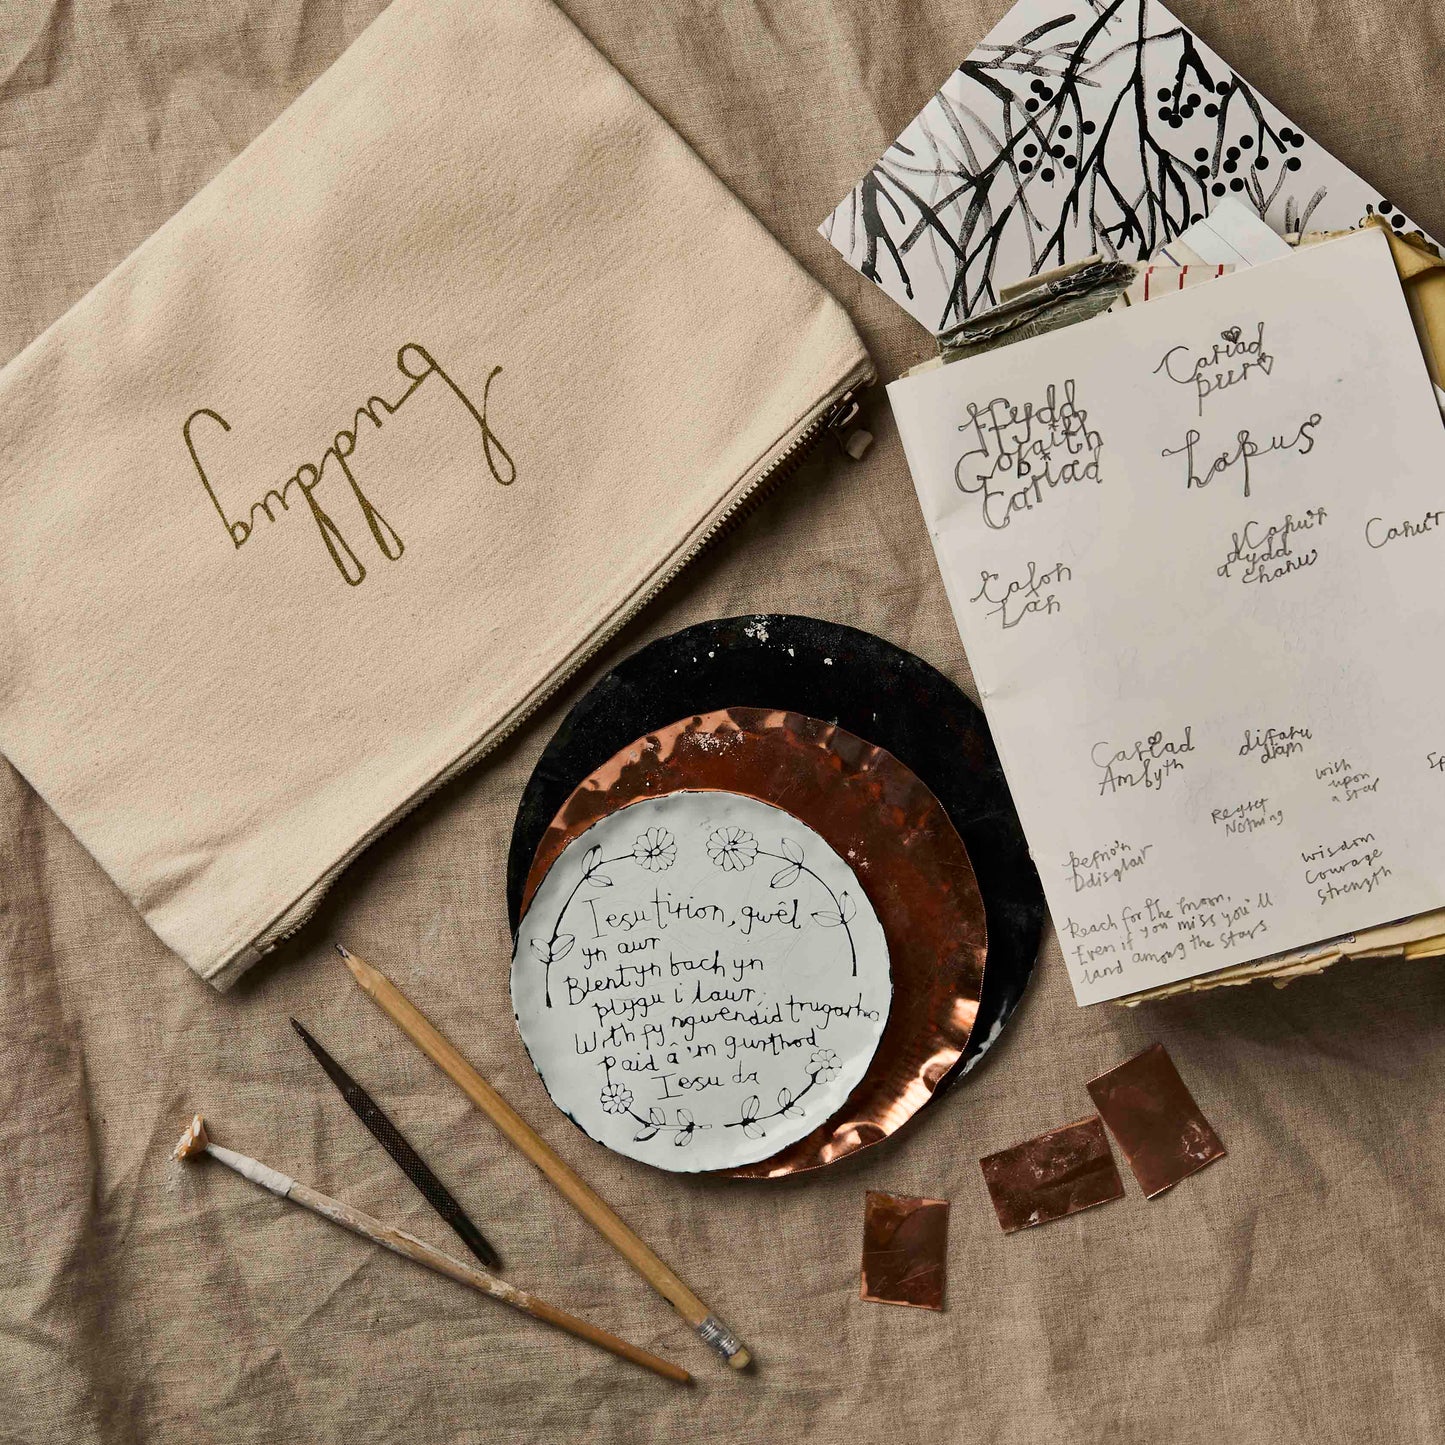 buddug
Cariad
pur
ffydd
Gobaith
Cariad
hapus
Canu'r
dydd
a chanu
Canu'r
Calon
Lân
Cariad
Am byth
difaru
dim
wish
upon
a star
Regret
Nothing
Pefrio'n
Ddisglair
wisdom
Courage
Strength
Reach for the moon,
Even if you miss you'll
land among the stars
Iesu tirion, gwêl
yn awr
Blentyn bach yn
plygu i lawr;
Wrth fy ngwendid trugarha
Paid â'm gwrthod
Iesu da